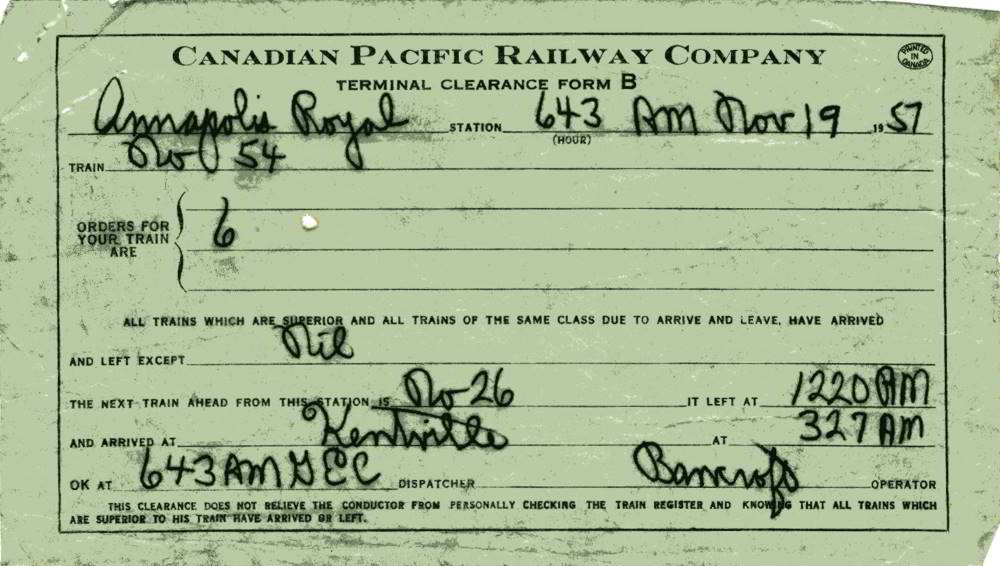 CANADIAN PACIFIC RAILWAY COMPANY
PRINTED IN CANADA
TERMINAL CLEARANCE FORM B
Annapolis Royal STATION 643 AM Nov 19 1957
(HOUR)
TRAIN No 54
ORDERS FOR
YOUR TRAIN 6
ARE
ALL TRAINS WHICH ARE SUPERIOR AND ALL TRAINS OF THE SAME CLASS DUE TO ARRIVE AND LEAVE, HAVE ARRIVED
AND LEFT EXCEPT Nil
THE NEXT TRAIN AHEAD FROM THIS STATION IS No 26 IT LEFT AT 1220 AM
AND ARRIVED AT Kentville AT 327 AM
OK AT 643 AM GEC DISPATCHER Bancroft OPERATOR
THIS CLEARANCE DOES NOT RELIEVE THE CONDUCTOR FROM PERSONALLY CHECKING THE TRAIN REGISTER AND KNOWING THAT ALL TRAINS WHICH
ARE SUPERIOR TO HIS TRAIN HAVE ARRIVED OR LEFT.